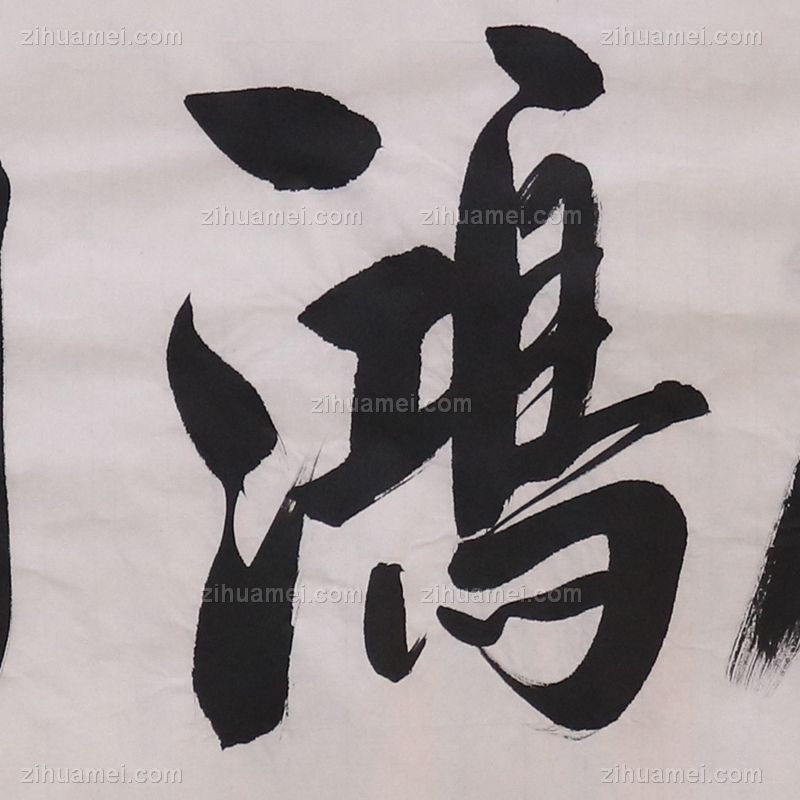 鸿
zihuamei.com zihuamei.com
zihuamei.com zihuamei.com
zihuamei.com
zihuamei.com zihuamei.com
zihuamei.com zihuamei.com